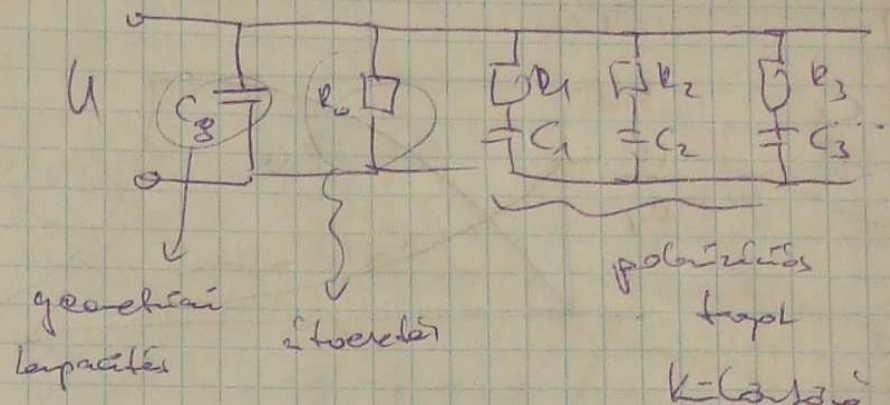 U
C_g R_0 R_1 R_2 R_3
C_1 C_2 C_3 ...
geometriai
kapacitás
átvezetés
polarizációs
tagok